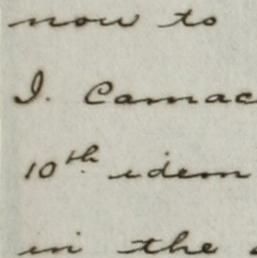 now to
J. Camac
10th idem
in the